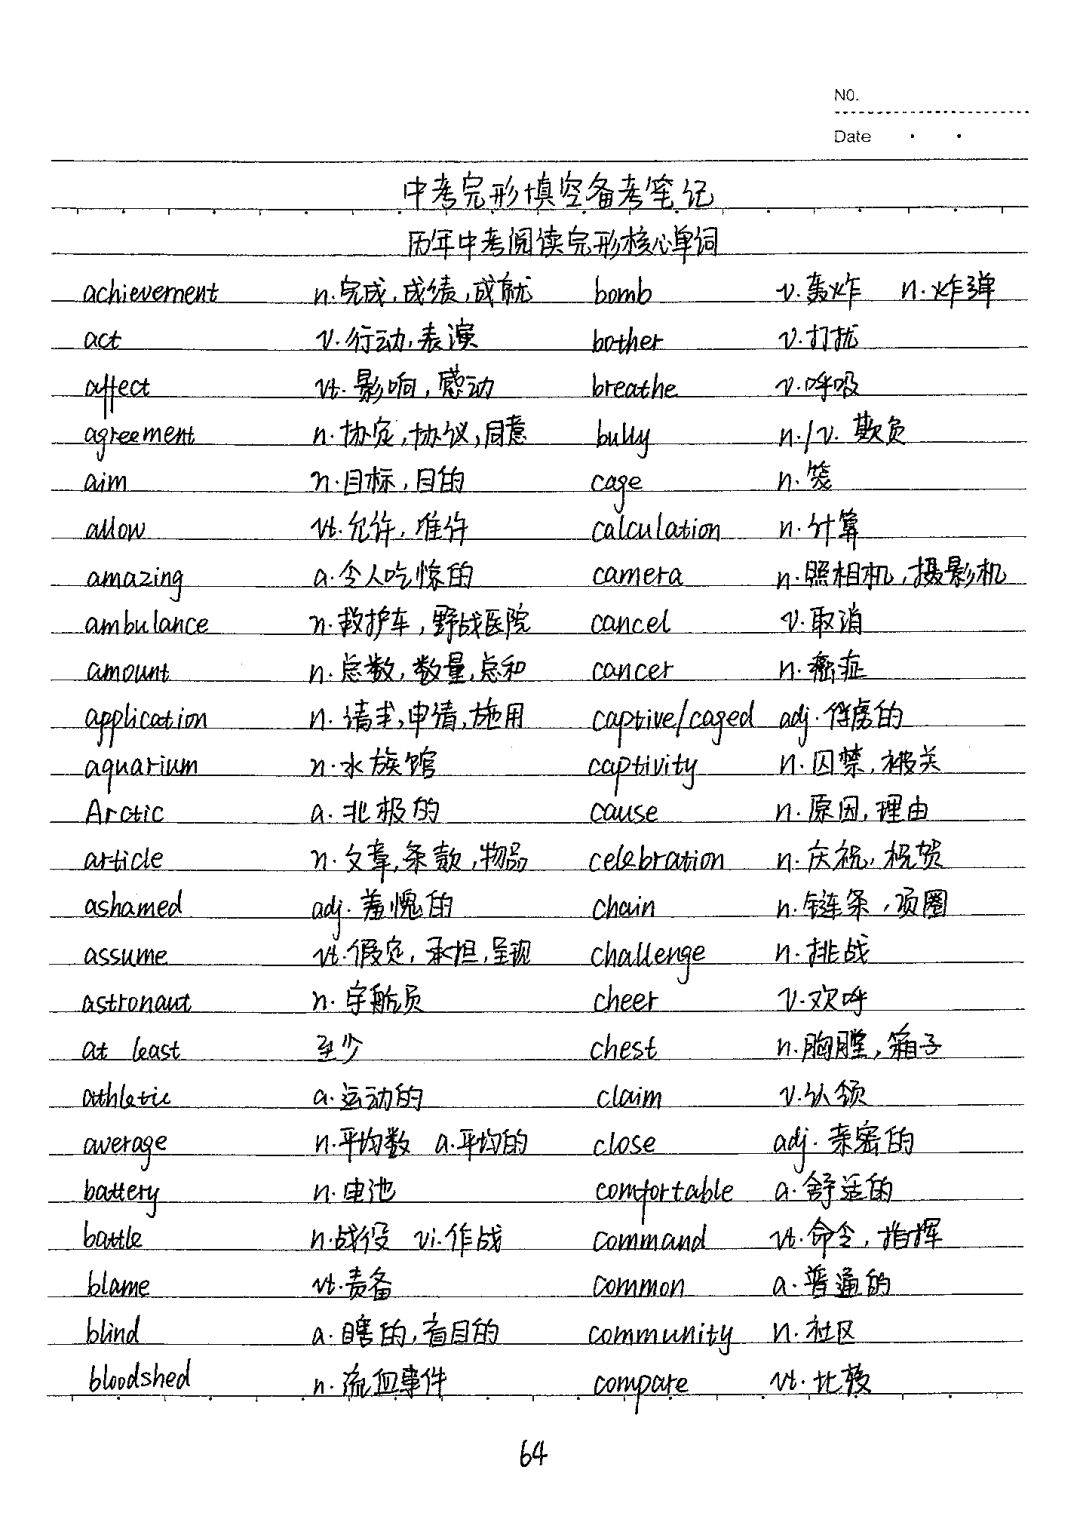 NO.
Date
中考完形填空备考笔记
历年中考阅读完形核心单词
achievement n.完成,成绩,成就 bomb v.轰炸 n.炸弹
act v.行动,表演 bother v.打扰
affect vt.影响,感动 breathe v.呼吸
agreement n.协定,协议,同意 bully n./v.欺负
aim n.目标,目的 cage n.笼
allow vt.允许,准许 calculation n.计算
amazing a.令人吃惊的 camera n.照相机,摄影机
ambulance n.救护车,野战医院 cancel v.取消
amount n.总数,数量,总和 cancer n.癌症
application n.请求,申请,施用 captive/caged adj.俘虏的
aquarium n.水族馆 captivity n.囚禁,被关
Arctic a.北极的 cause n.原因,理由
article n.文章,条款,物品 celebration n.庆祝,祝贺
ashamed adj.羞愧的 chain n.链条,项圈
assume vt.假定,承担,呈现 challenge n.挑战
astronaut n.宇航员 cheer v.欢呼
at least 至少 chest n.胸膛,箱子
athletic a.运动的 claim v.认领
average n.平均数 a.平均的 close adj.亲密的
battery n.电池 comfortable a.舒适的
battle n.战役 vi.作战 command vt.命令,指挥
blame vt.责备 common a.普通的
blind a.瞎的,盲目的 community n.社区
bloodshed n.流血事件 compare vt.比较
64